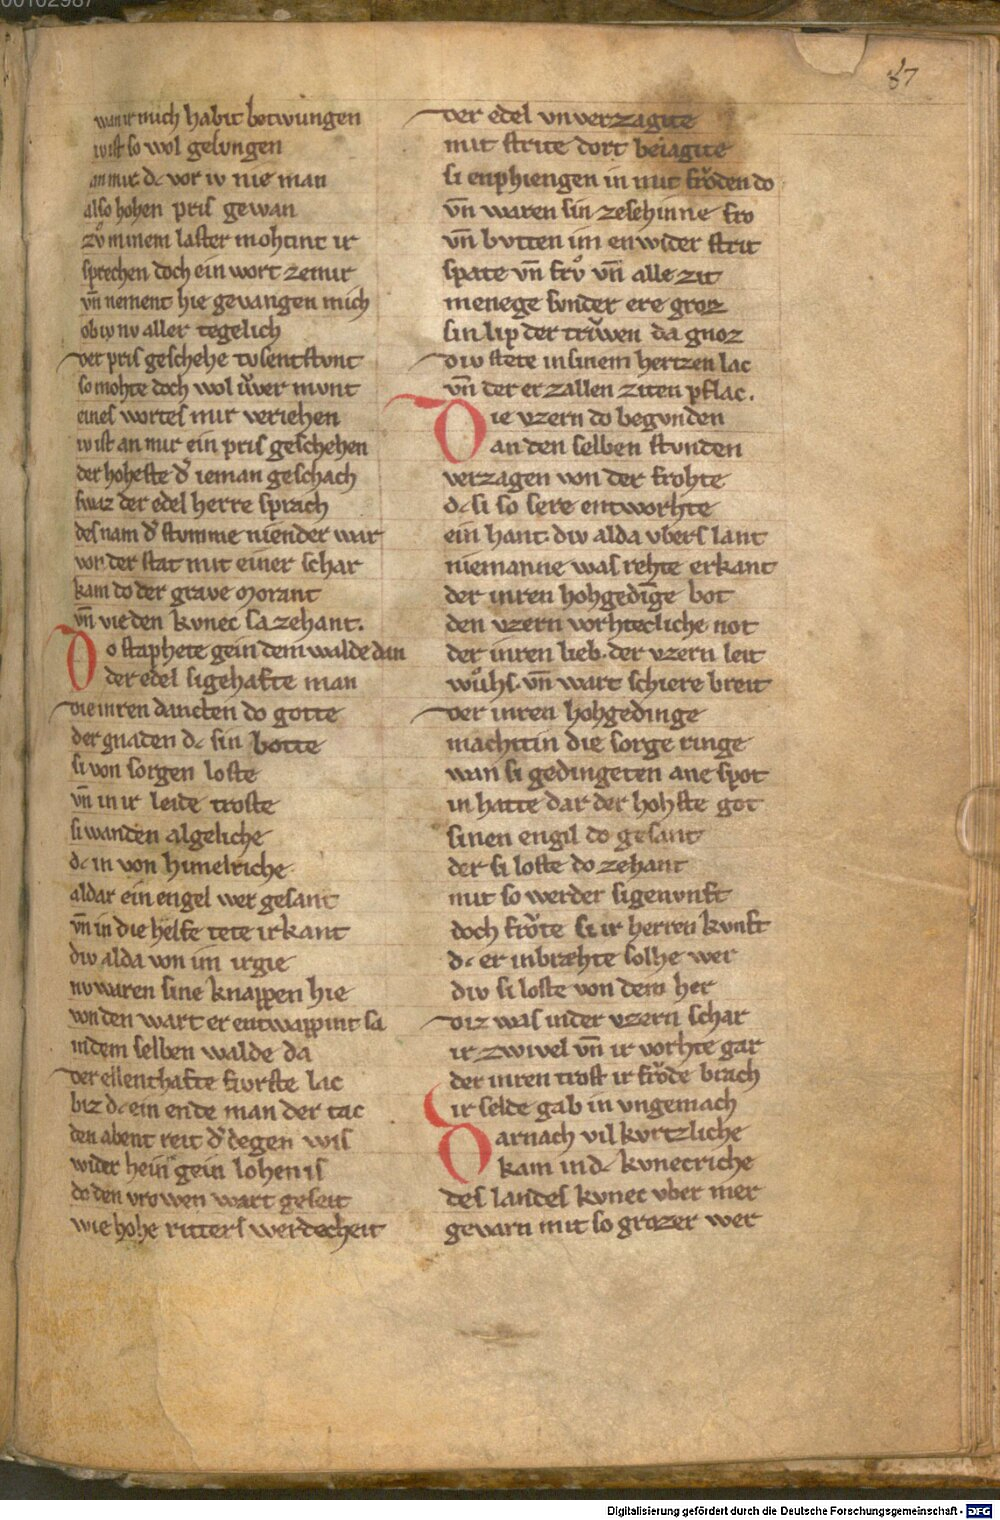 00102987
87
wan ir mich habit betwungen
iv ist so wol gelvngen
an mir dc vor iv nie man
also hohen pris gewan
zů minem laster mohtint ir
sprechen doch ein wort ze mir
vn̄ nement hie gevangen mich
ob iv nv aller tegelich
der pris geschehe tvsentstvnt
so mohte doch wol iv̉wer mvnt
eines wortes mir veriehen
iv ist an mir ein pris geschehen
der hoheste d' ieman geschach
swaz der edel herre sprach
des nam d' stvmme niender war
von der stat mit einer schar
kam do der grave morant
vn̄ vie den kvnec sa zehant.
Do staphete gein dem walde dan
der edel sigehafte man
die inren dancten do gotte
der gnaden dc sin botte
si von sorgen loste
vn̄ in ir leide troste
si wanden algeliche
dc in von himelriche
aldar ein engel wer gesant
vn̄ in die helfe tete irkant
div alda von im irgie
nv waren sine knappen hie
von den wart er entwappint sa
in dem selben walde da
der ellenthafte fvrste lac
biz dc ein ende man der tac
den abent reit d' degen wis
wider hein gein lohenis
do den vrowen wart geseit
wie hohe ritters werdecheit
der edel vnverzagite
mit strite dort beiagite
si enphiengen in mit frőden do
vn̄ waren sin ze sehinne fro
vn̄ bvtten im en wider strit
spate vn̄ frů vn̄ alle zit
menege svnder ere groz
sin lip der trv̉wen da gnoz
div stete in sinem hertzen lac
vn̄ der er zallen ziten pflac.
Die vzern do begvnden
an den selben stvnden
verzagen von der frohte
dc si so sere entworhte
ein hant. div alda vbers lant
niemanne was rehte erkant
der inren hohgedinge bot
den vzern vorhtecliche not
der inren lieb. der vzern leit
wůhs. vn̄ wart schiere breit
der inren hohgedinge
machit in die sorge ringe
wan si gedingeten ane spot
in hatte dar der hohste got
sinen engil do gesant
der si loste do zehant
mit so werder sigenvnft
doch frőte si ir herren kvnft
dc er in bræhte solhe wer
div si loste von dem her
diz was inder vzern schar
ir zwivel vn̄ ir vorhte gar
der inren trost ir frőde brach
ir selde gab in vngemach
Darnach vil kvrtzliche
kam in dc kvnecriche
des landes kvnec vber mer
gevarn mit so grozer wer
Digitalisierung gefördert durch die Deutsche Forschungsgemeinschaft - DFG